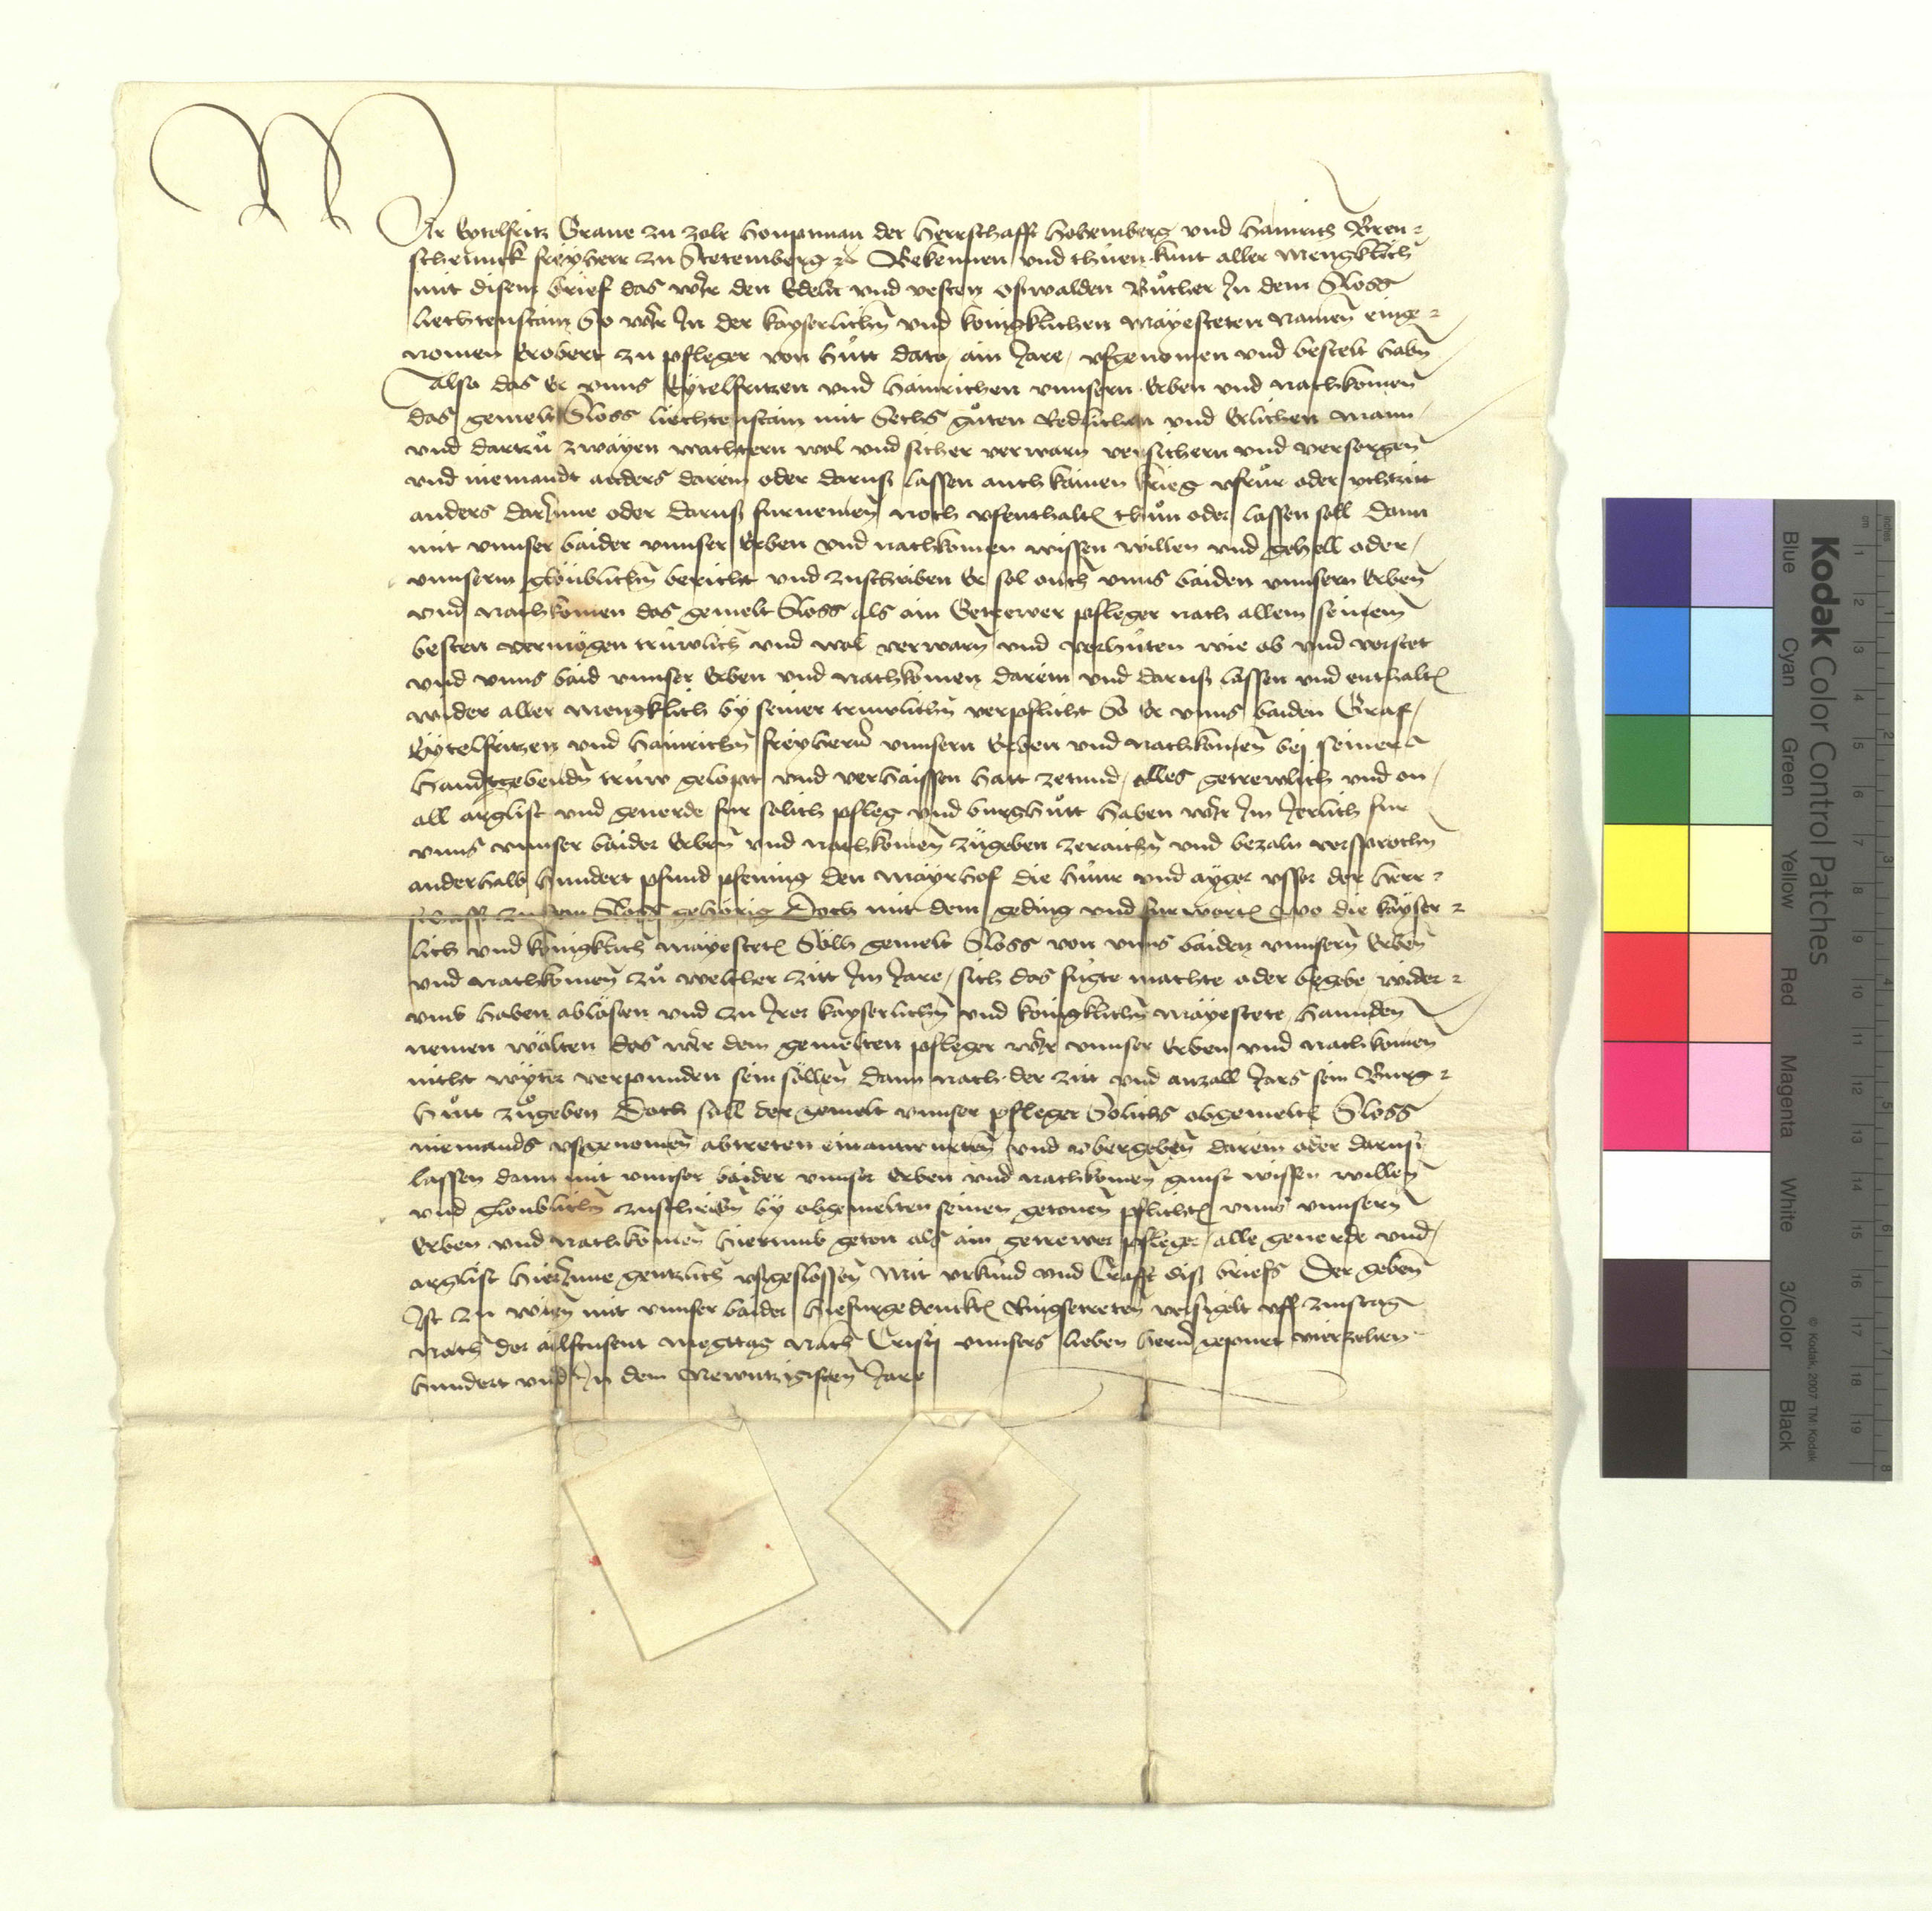 Wir Eytelfritz Graue zu zolr houptman der Herrschafft hohemberg und hainrich Bren⸗
schenink freyherr zu Stetemberg ⁊c Bekennen und thuen kunt aller mengklich
mit disem brief das wir den Edeln und vesten oswalden Bucher In dem Sloss
liechtenstain So wir In der kayserlichn und konigklichen mayesteten namen einge⸗
nomen Erobert zu pfleger von hutt dato ain Jare, ufgenomen und bestelt habn
Also das Er unns Eytelfritzen und hainrichen unnsern Erben und nachkomen
das gemelt Sloss liechtenstain mit Sechs guten Redlichen und Erlichen mann
und dartzu zwayen wachtern wol und sicher verwarn versichern und versorgen
und niemandt anders darein oder daruß lassen auch kainen krieg ufrur oder ychtzitt
anders darinne oder daruß furnemen noch ufenthaltn thun oder lassen soll dann
mit unnser baider unnser Erben und nachkomen wissen willen und gehell oder
unnserm gloublichn bericht und zuschriben Er sol ouch unns baiden unnsern Erben
und nachkomen das gemelt Sloss als ain Getrewer pfleger nach allem seinem
besten vermögen truwlich und wol verwarn und verhuten wie ob und vorstet
und unns baid unnser Erben und nachkomen darein und daruß lassen und enthaltn
wider aller mengklich by seiner truwlichn verpflicht So Er unns baiden Graf
Eytelfritzen und hainrichn freyherrn unnsern Erben und nachkomen bej seiner
handtgebendn truw gelopt und verhaissen hatt zetund, alles getrewlich und on
all arglist und geuerde fur solich pfleg und burghutt haben wir Im Jerlich fur
unns unnser baider Erbn und nachkomen zugeben zeraichn und bezaln versprochn
anderhalb hundert pfund pfening den mayrhof die hunr und ayger usser der herr⸗
schafft zu dem Sloss gehörig Doch mit dem geding und furwortn wo die kayser⸗
lich und konigklich mayestetn Sölh gemelt Sloss von unns baiden unnsern Erben
und nachkomen zu welicher zitt Im Jare, sich das fugte machte oder begebe wider⸗
umb haben ablösten und zu Irer kayserlichn und konigklichn mayestete hannden
nemen wölten das wir dem gemelten pfleger wir unnser Erben und nachkomen
nicht wyter verpunden sein söllen dann nach der zitt und anzall Jars sein Burg⸗
hutt zugeben Doch sall der gemelt unnser pfleger Solichs obgemeltn Sloss
niemands usgenomen abtreten einantwurten und übergeben darein oder daruß
lassen dann mit unnser baider unnser Erben und nachkomen gunst wissen willen
und gloublichn zuschribn by obgemelten seinen getonen pflichtn unns unnsern
Erben und nachkomen hierumb geton als ain getrewer pfleger, alle geuerde und
arglist hierinne gentzlich usgeslossen Mit urkund und Crafft diß briefs Der geben
Ist zu wien mit unnser baider hiefurgedrucktn Ringsecreten versigelt uff zinstag
nach der ailftusent megttag nach Cristj unnsers lieben herrn gepurt vierzehen
hundert und In dem Newntzigisten Jare
Kodak Color Control Patches
Blue Cyan Green Yellow Red Magenta White 3/Color Black
© Kodak, 2007 TM: Kodak
cm 1 2 3 4 5 6 7 8 9 10 11 12 13 14 15 16 17 18 19
inches 1 2 3 4 5 6 7 8